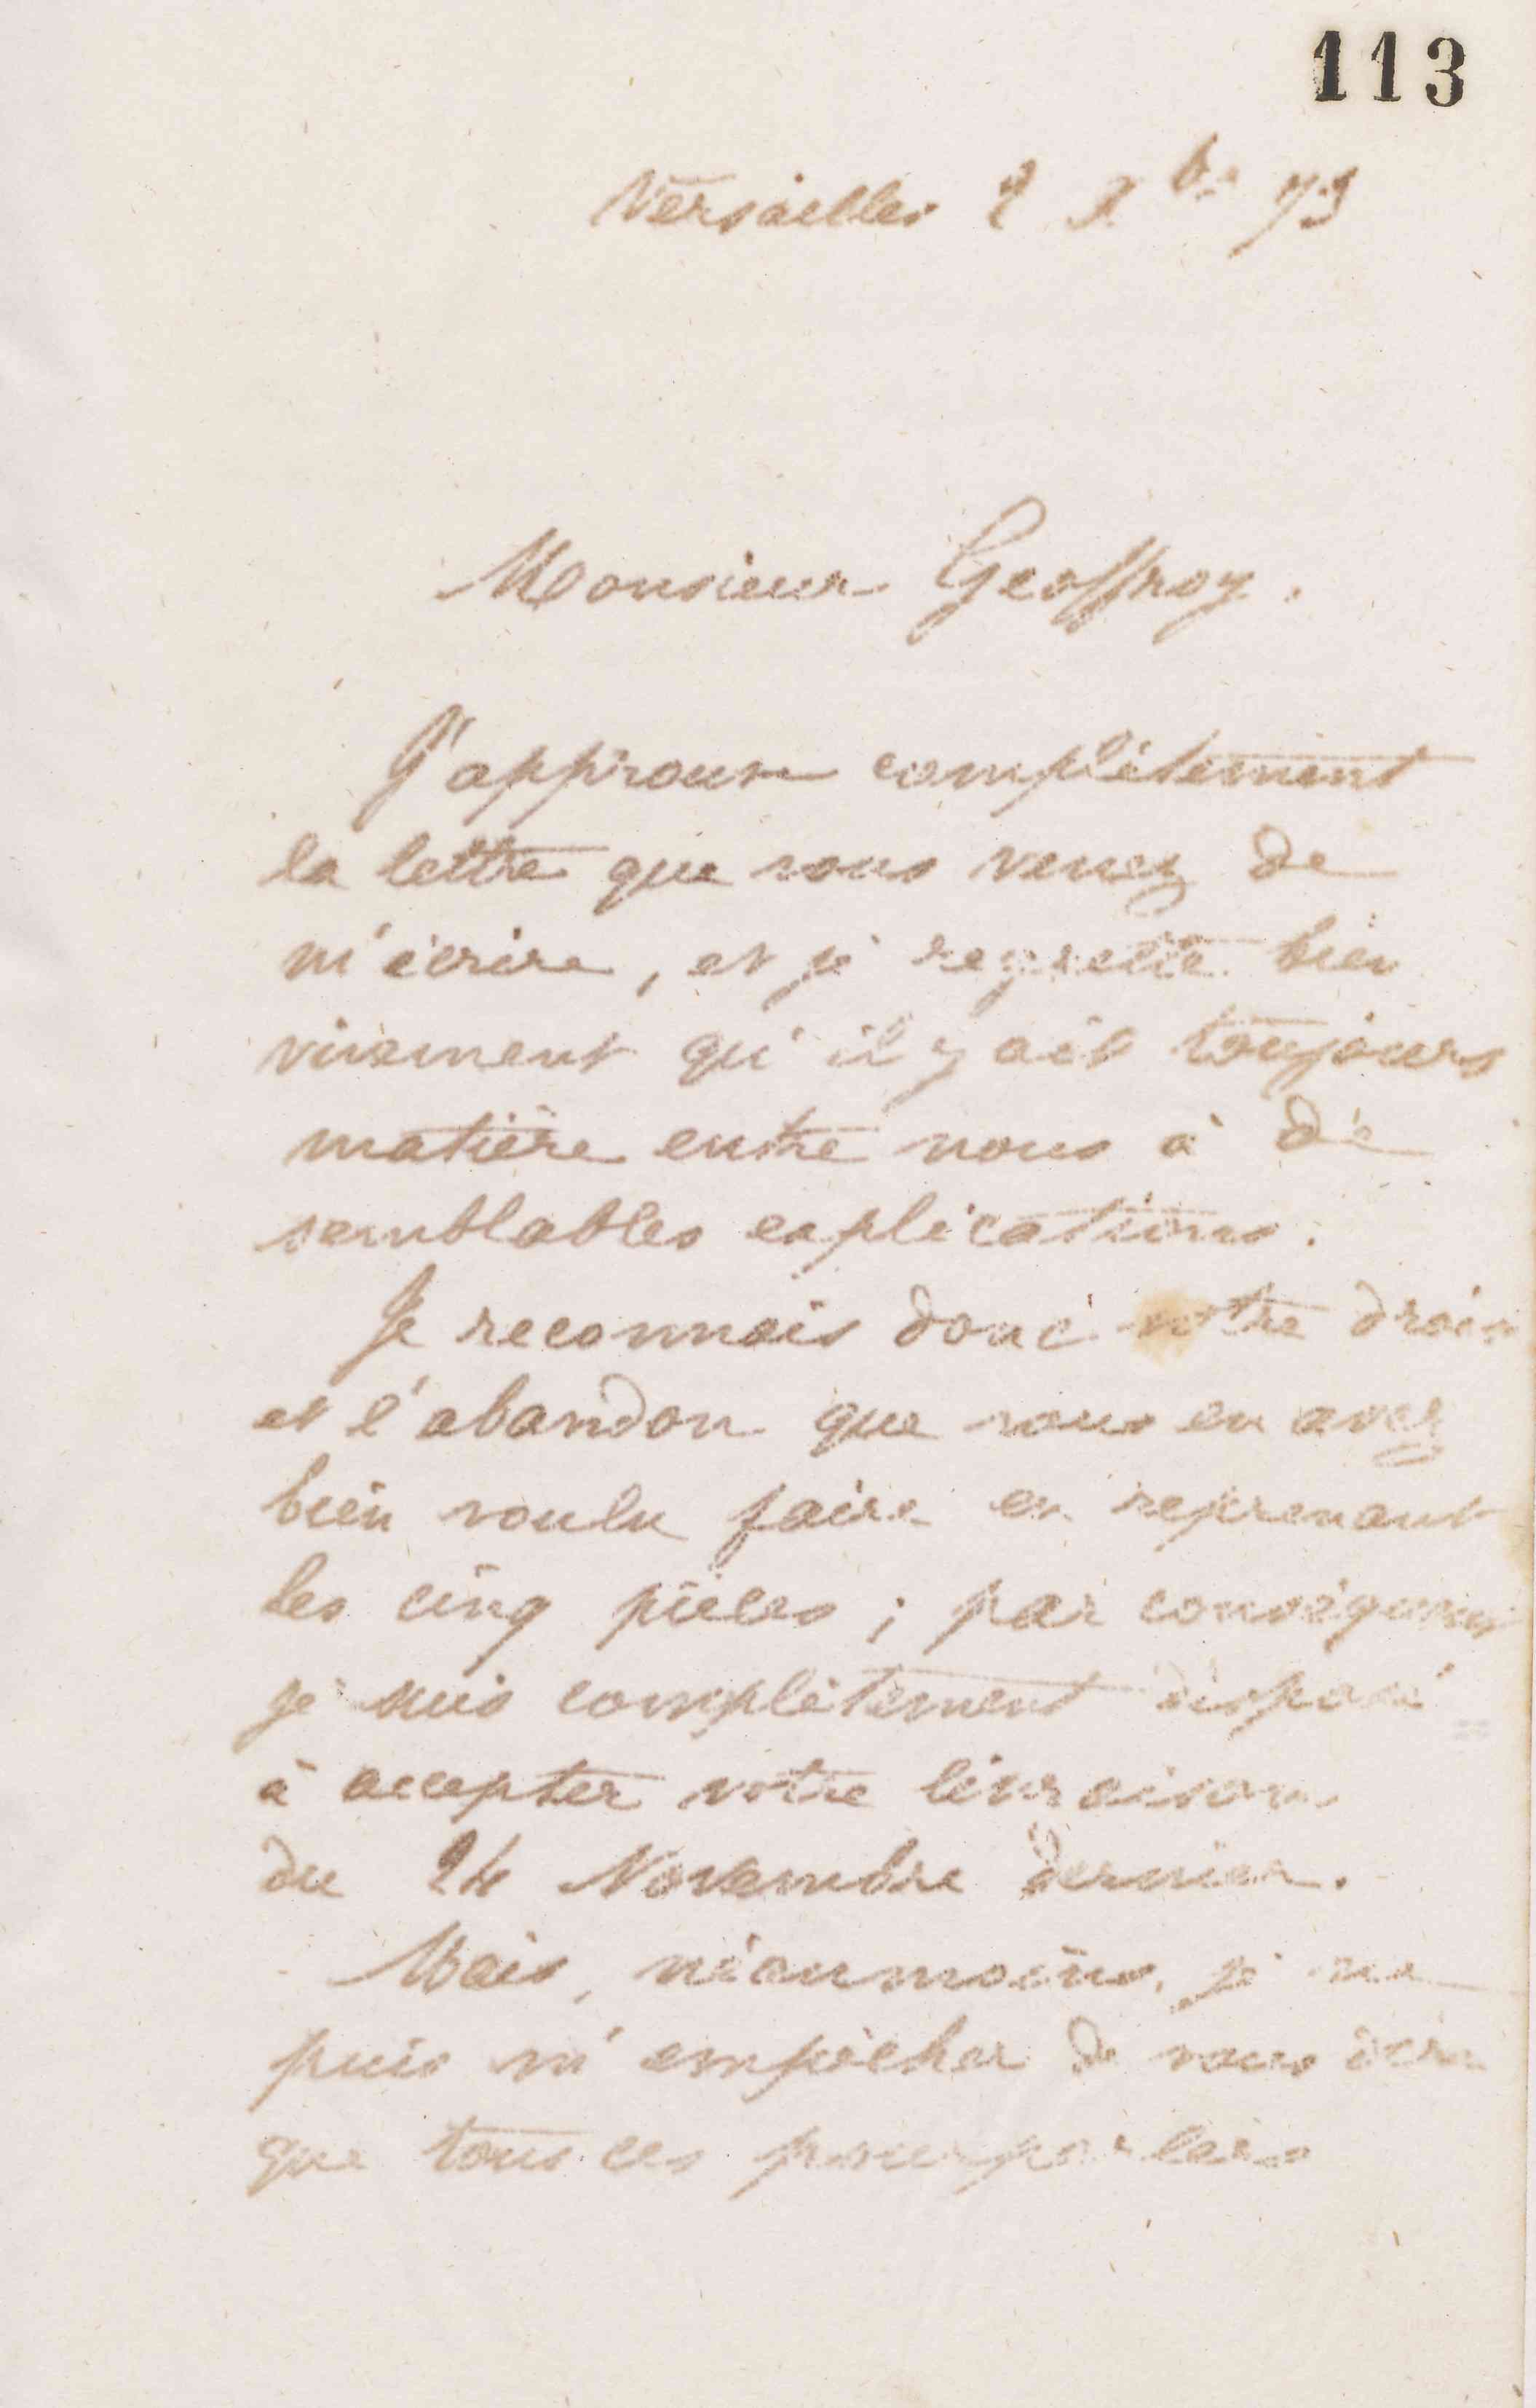 113
Versailles 2 Xbre 73
Monsieur Geoffroy.
J'approuve complètement
la lettre que vous venez de
m'écrire, et je regrette bien
vivement qu'il y ait toujours
matière entre nous à de
semblables explications.
Je reconnais donc votre droit
et l'abandon que vous en avez
bien voulu faire en reprenant
les cinq pièces ; par conséquent
je suis complètement disposé
à accepter votre livraison
du 24 Novembre dernier.
Mais, néanmoins, je ne
puis m'empêcher de vous dire
que tous ces pourparlers